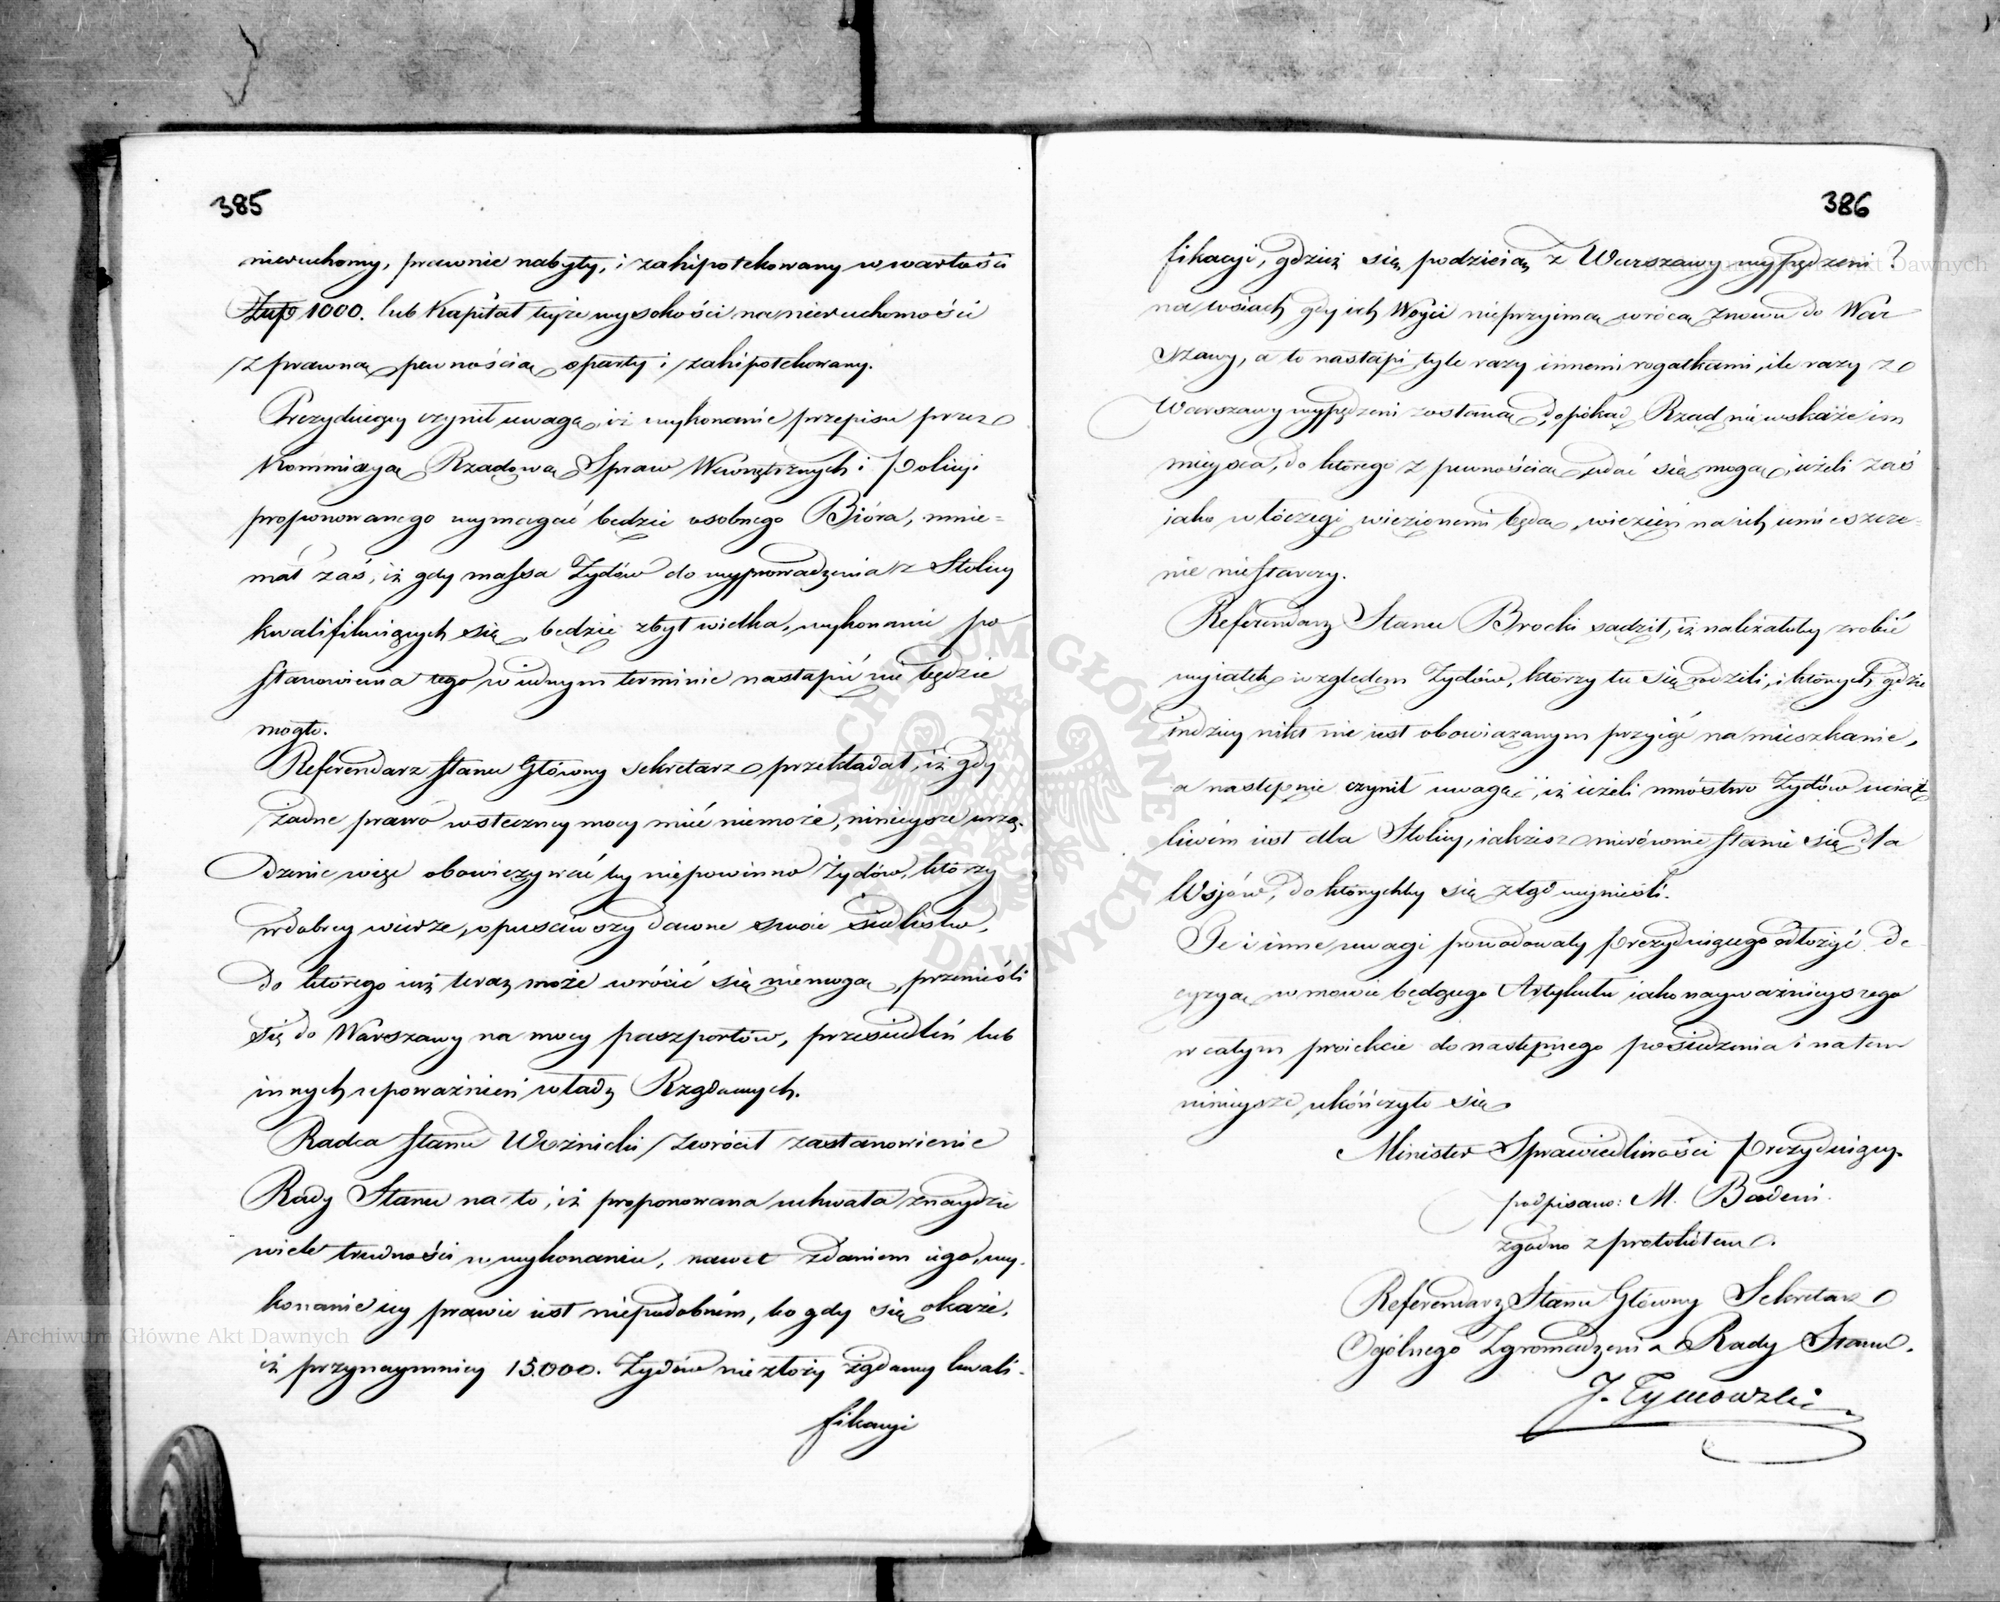 385
nieruchomy, prawnie nabyty, i zahipotekowany w wartości
Złp 1000. lub Kapitał tejże wysokości na nieruchomości
z prawną pewnością oparty i zahipotekowany.
Prezyduiący czynił uwagę, iż wykonanie przepisu przez
Kommissyą Rządową Spraw Wewnętrznych i Policyi
proponowanego wymagać będzie osobnego Bióra, mnie=
mał zaś, iż gdy massa Żydów do wyprowadzenia z Stolicy
kwalifikuiących się, będzie zbyt wielka, wykonanie po
stanowienia tego w iednym terminie nastąpić nie będzie
mogło.
Referendarz Stanu Główny Sekretarz przekładał, iż gdy
żadne prawo wsteczney mocy mieć niemoże, ninieysze urzą-
dzenie więc obowiązywać by niepowinno Żydów, którzy
w dobrey wierze, opuściwszy dawne swoie siedlisko,
do którego iuż teraz może wrócić się niemogą, przenieśli
się do Warszawy na mocy paszportów, przesiedleń lub
innych upoważnień władz Rządowych.
Radca Stanu Woźnicki zwrócił zastanowienie
Rady Stanu na to, iż proponowana uchwała znaydzie
wiele trudności w wykonaniu, nawet zdaniem iego, wy-
konanie iey prawie iest niepodobném, bo gdy się okaże,
iż przynaymniey 15.000. Żydów nie złoży żądaney kwali-
fikacyi
386
fikacyi, gdzież się podzieią z Warszawy wypędzeni?
na wsiach gdy ich Wóyci nieprzyimą wrócą znowu do War
szawy, a to nastąpi tyle razy innemi rogatkami, ile razy z
Warszawy wypędzeni zostaną, dopókąd Rząd nie wskaże im
mieysca, do którego z pewnością udać się mogą, ieżeli zaś
jako włóczęgi więzionemi będą, więzień na ich umieszcze=
nie niestarczy.
Referendarz Stanu Brocki sądził, iż należałoby zrobić
wyiątek względem Żydów, którzy tu się rodzili, i których gdzie
indziey nikt nie iest obowiązanym przyiąć na mieszkanie,
a następnie czynił uwagę, iż ieżeli mnóstwo Żydów uciąż
liwém iest dla Stolicy, iakżesz nierównie stanie się dla
Wsjów, do którychby się ztąd wynieśli.
Te i inne uwagi powodowały Prezyduiącego odłożyć de
cyzyą w mowie będącego Artykułu iako nayważnieyszego
w całym proiekcie do następnego posiedzenia i na tem
ninieysze ukończyło się
Minister Sprawiedliwości Prezyduiący.
podpisano: M. Badeni.
zgodno z protokółem.
Referendarz Stanu Główny Sekretarz
Ogólnego Zgromadzenia Rady Stanu.
J. Tymowski
Archiwum Główne Akt Dawnych
ARCHIWUM GŁÓWNE AKT DAWNYCH